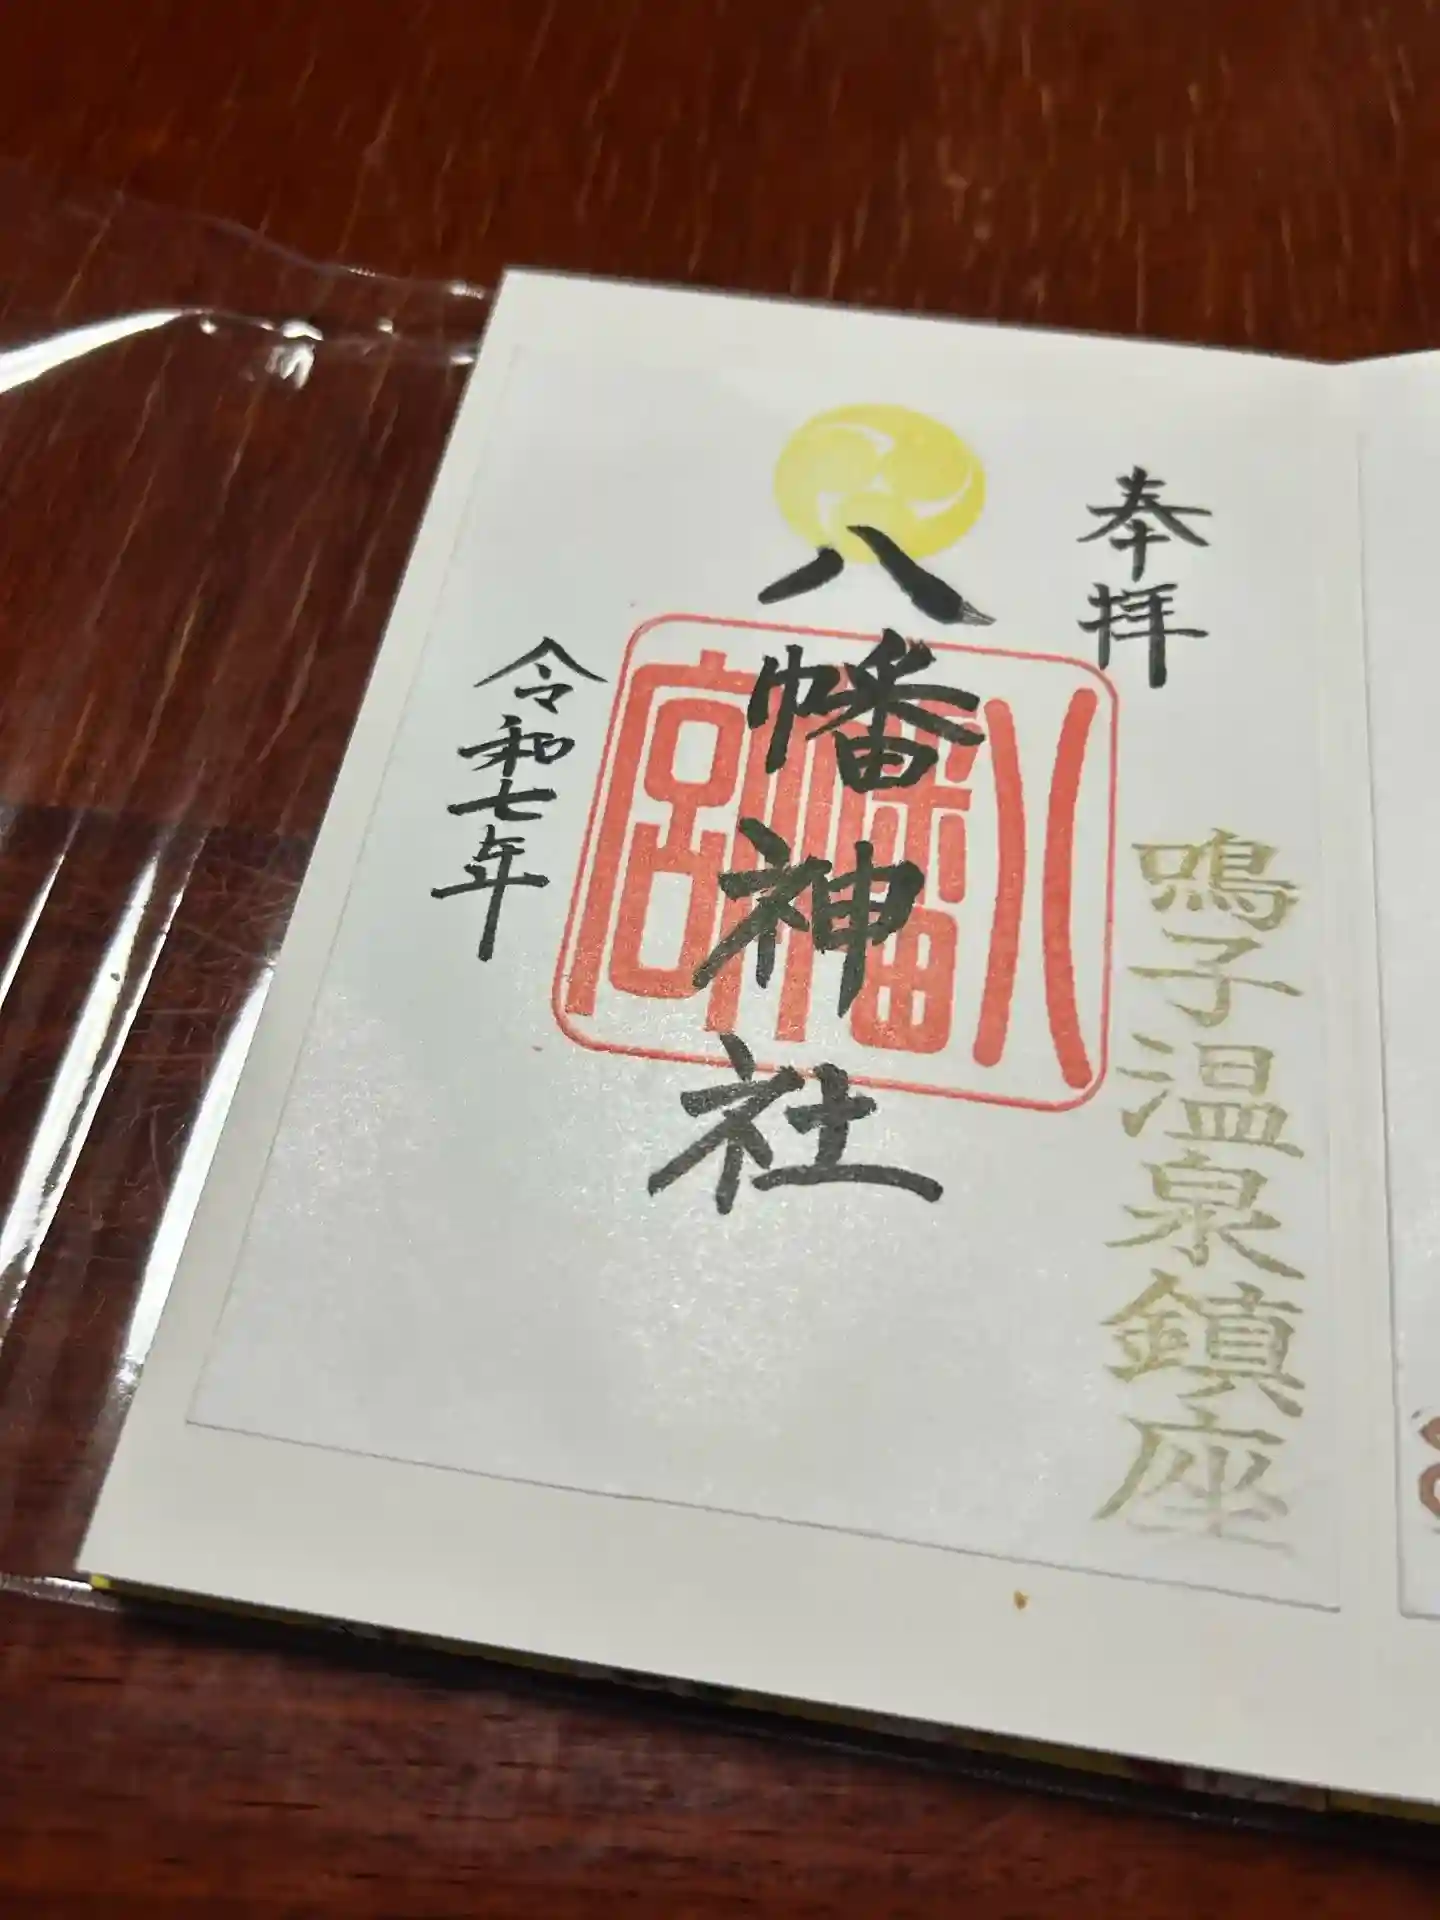 奉拝
鳴子温泉鎮座
八幡神社
八幡宮
令和七年